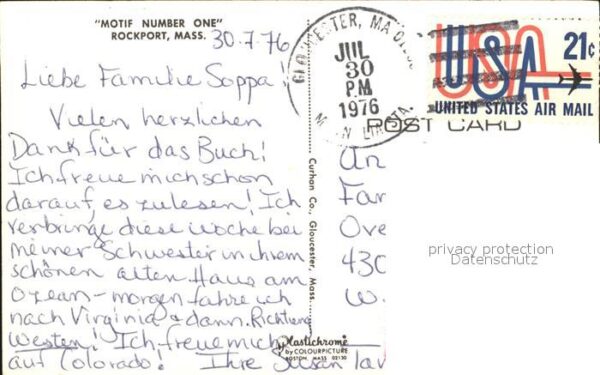 "MOTIF NUMBER ONE"
ROCKPORT, MASS.
30.7.76
Liebe Familie Soppa!
Vielen herzlichen
Dank für das Buch!
Ich freue mich schon
darauf, es zu lesen! Ich
verbringe diese Woche bei
meiner Schwester in ihrem
schönen alten Haus am
Ozean - morgen fahre ich
nach Virginia & dann Richtung
Westen! Ich freue mich
auf Colorado! Ihre Susan
GLOUCESTER, MA
JUL
30
PM
1976
MAIN STA.
USA 21c
UNITED STATES AIR MAIL
POST CARD
Curhan Co., Gloucester, Mass.
An
Fam
Ove
430
W.
privacy protection
Datenschutz
Plastichrome
by COLOURPICTURE
BOSTON, MASS 02130